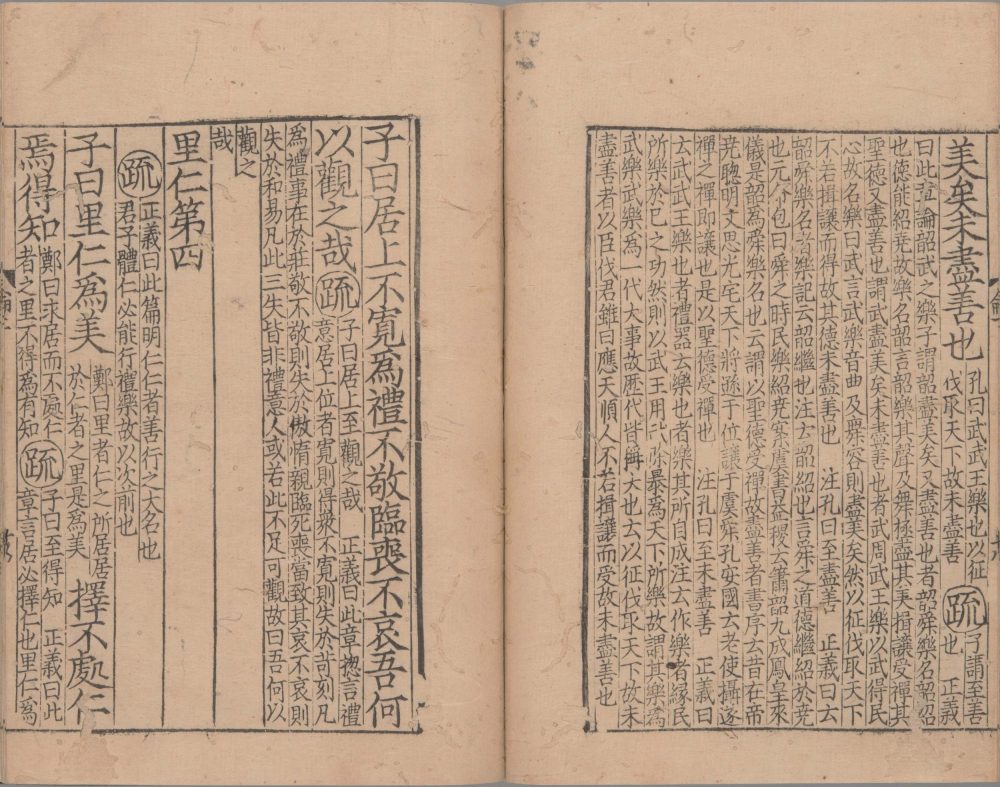 美矣未盡善也孔曰武武王樂也以征伐取天下故未盡善疏子謂至善也　正義
曰此章論韶武之樂子謂韶盡美矣又盡善也者韶舜樂名韶紹
也德能紹堯故樂名韶言韶樂其聲及舞極盡其美揖讓受禪其
聖德又盡善也謂武盡美矣未盡善也者武周武王樂以武得民
心故名樂曰武言武樂音曲及舞容則盡美矣然以征伐取天下
不若揖讓而得故其德未盡善也　注孔曰至盡善　正義曰云
韶舜樂名者樂記云韶繼也注云韶紹也言舜之道德繼紹於堯
也元命包曰舜之時民樂紹堯業虞書益稷云簫韶九成鳳皇來
儀是韶為舜樂名也云謂以聖德受禪故盡善者書序云昔在帝
堯聰明文思光宅天下將遜于位讓于虞舜孔安國云老使攝遂
禪之禪即讓也是以聖德受禪也　注孔曰至未盡善　正義曰
云武武王樂也者禮器云樂也者樂其所自成注云作樂者緣民
所樂於已之功然則以武王用武除暴為天下所樂故謂其樂為
武樂武樂為一代大事故歷代皆稱大也云以征伐取天下故未
盡善者以臣伐君雖曰應天順人不若揖讓而受故未盡善也
子曰居上不寬爲禮不敬臨喪不哀吾何
以觀之哉疏子曰居上至觀之哉　正義曰此章揔言禮意居上位者寬則得衆不寬則失於苛刻凡
為禮事在於莊敬不敬則失於傲惰親臨死喪當致其哀不哀則
失於和易凡此三失皆非禮意人或若此不足可觀故曰吾何以
觀之
哉
里仁第四
疏正義曰此篇明仁仁者善行之大名也君子體仁必能行禮樂故以次前也
子曰里仁爲美鄭曰里者仁之所居居於仁者之里是爲美擇不處仁
焉得知鄭曰求居而不處仁者之里不得爲有知疏子曰至得知　正義曰此章言居必擇仁也里仁爲